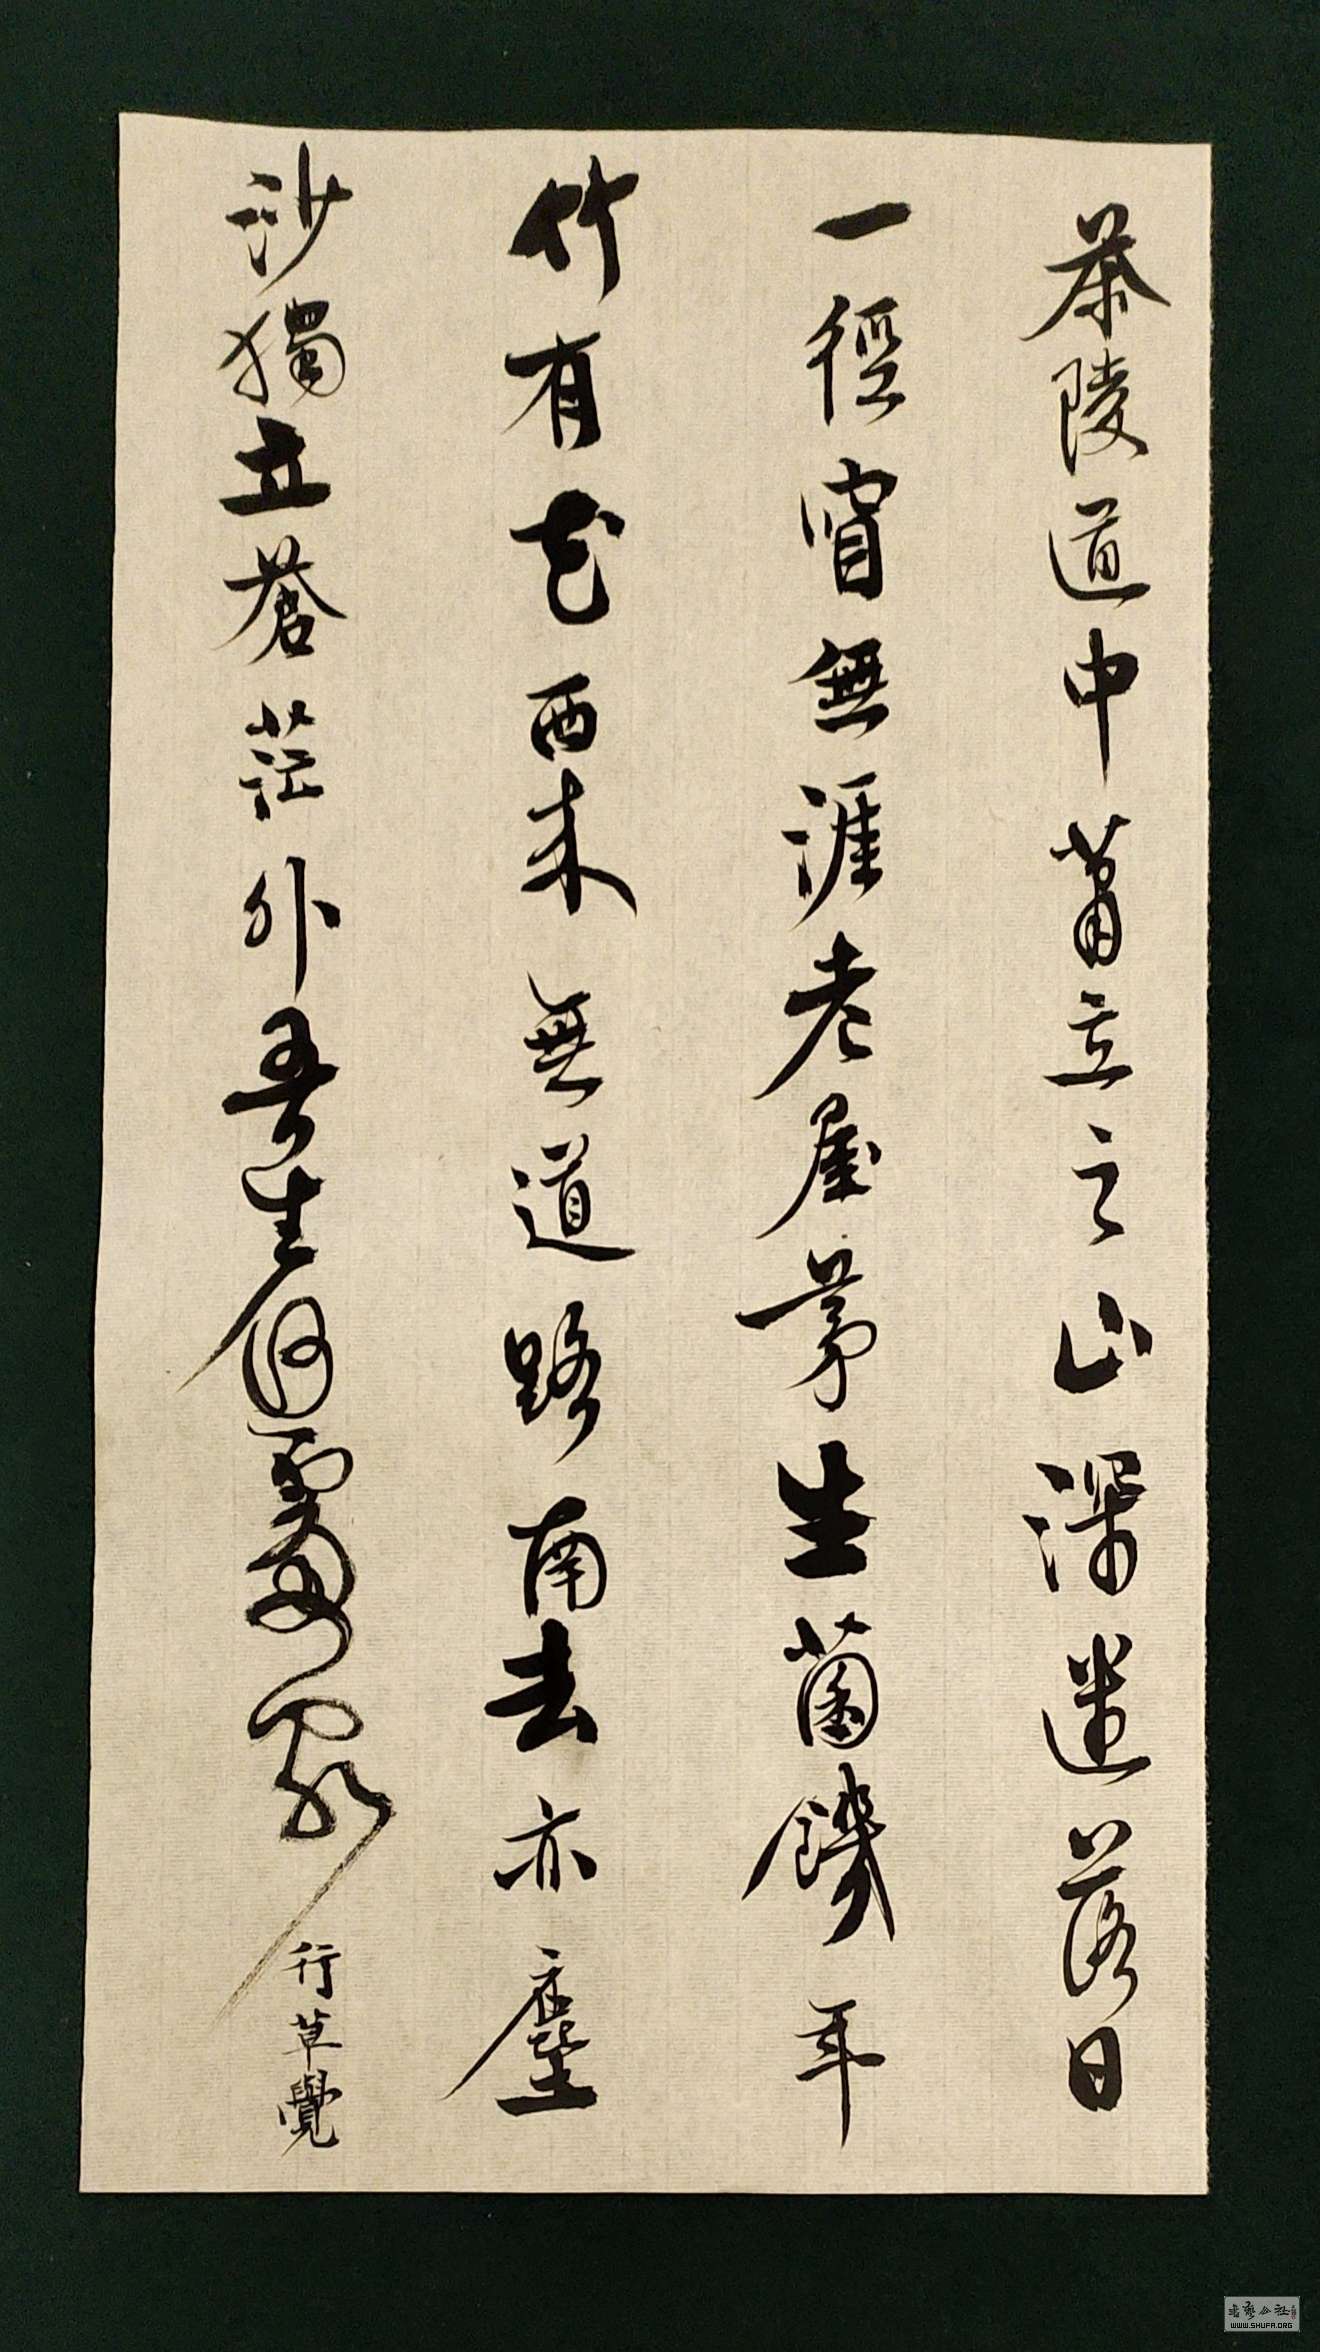 茶陵道中 蕭立之 山深迷落日
一徑窅無涯老屋茅生菌饑年
竹有花西來無道路南去亦塵
沙獨立蒼茫外吾生何處家
行草覺
WWW.SHUFA.ORG